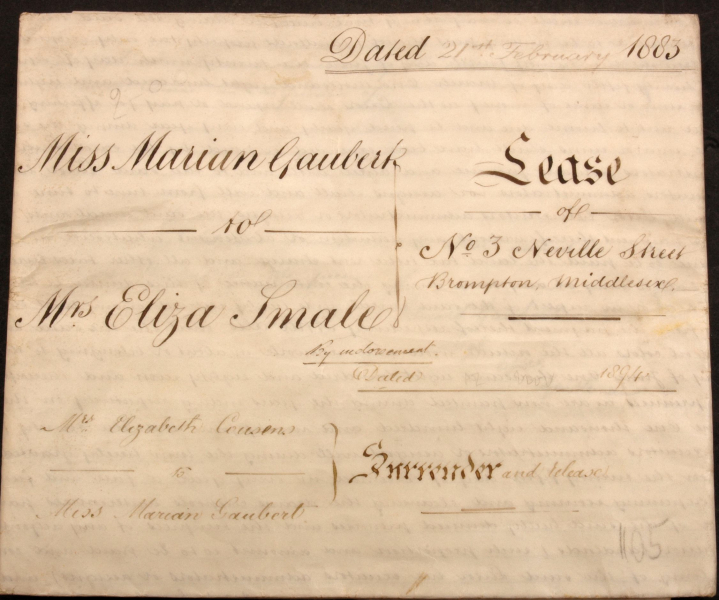 Dated 21st February 1883
Miss Marian Gaubert
to
Mrs Eliza Smale
Lease
of
No 3 Neville Street
Brompton, Middlesex.
By indorsement.
Dated 1894
Mrs Elizabeth Cousens
to
Miss Marian Gaubert
Surrender and release
1105